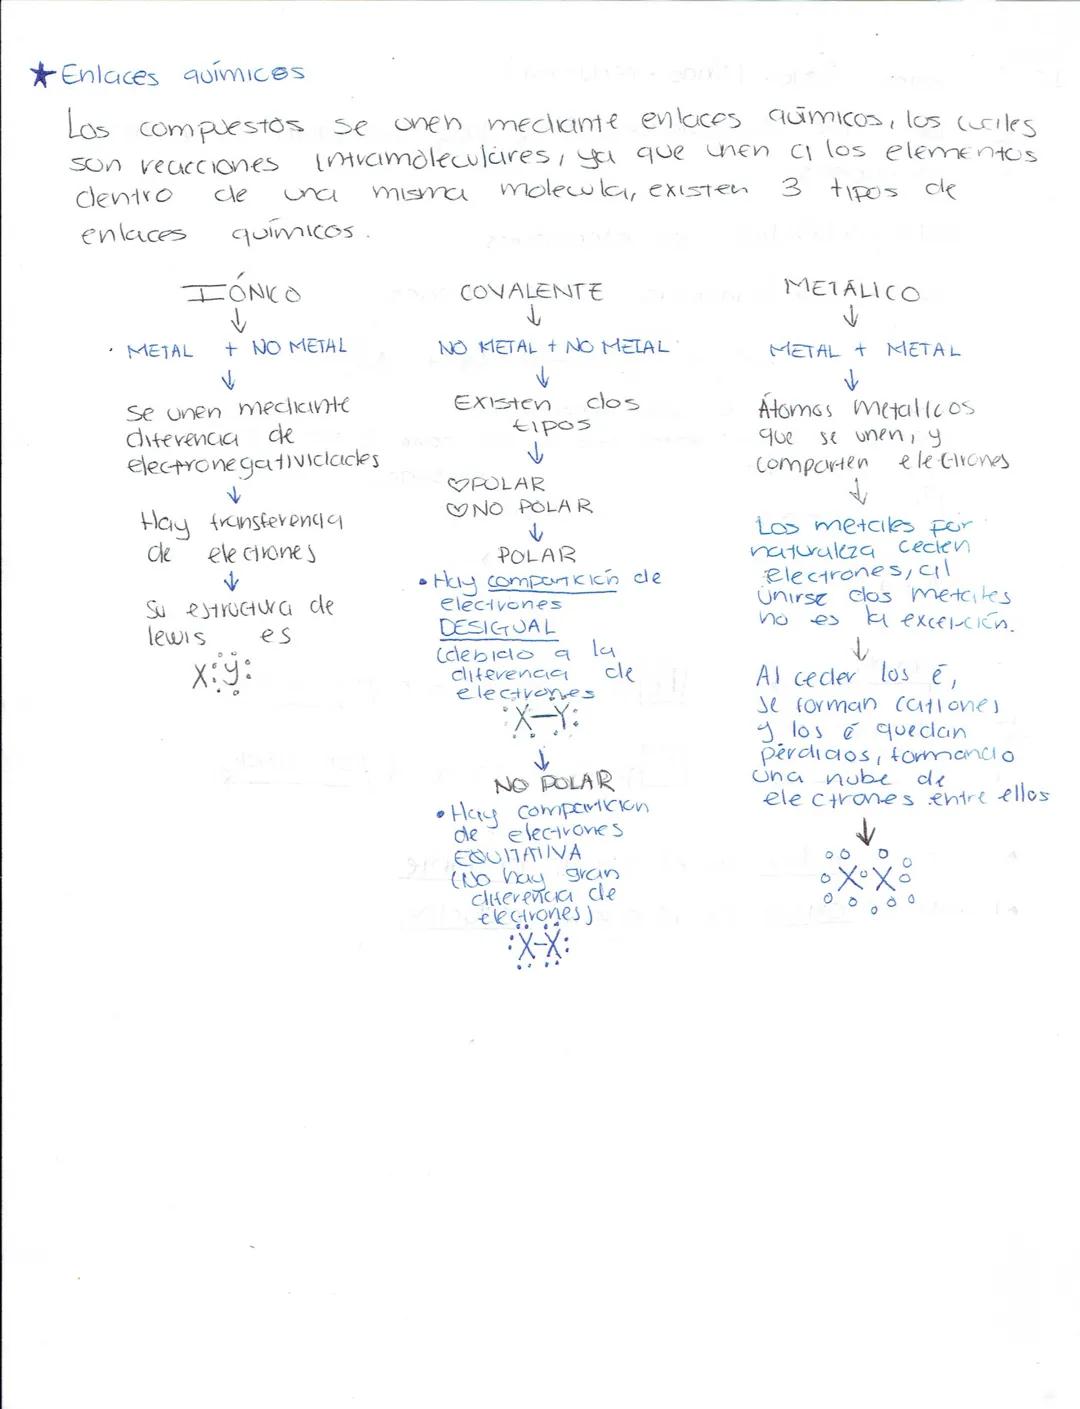 ★ Enlaces químicos
Los compuestos se unen mediante enlaces químicos, los cuales
son reacciones intramoleculares, ya que unen a los elementos
dentro de una misma molecula, existen 3 tipos de
enlaces químicos.
IÓNICO
↓
METAL + NO METAL
↓
Se unen mediante
diferencia de
electronegatividades
↓
Hay transferencia
de electrones
↓
Su estructura de
lewis es
X:Y:
COVALENTE
↓
NO METAL + NO METAL
↓
Existen dos
tipos
↓
♡POLAR
♡NO POLAR
↓
POLAR
• Hay compartición de
electrones
DESIGUAL
(debido a la
diferencia de
electrones
:X—Y:
↓
NO POLAR
• Hay compartición
de electrones
EQUITATIVA
(No hay gran
diferencia de
electrones)
:X-X:
METÁLICO
↓
METAL + METAL
↓
Átomos metalicos
que se unen, y
comparten electrones
↓
Los metales por
naturaleza ceden
electrones, al
unirse dos metales
no es la excepción.
↓
Al ceder los é,
se forman cationes
y los é quedan
pérdidos, formando
una nube de
electrones entre ellos
↓
X X